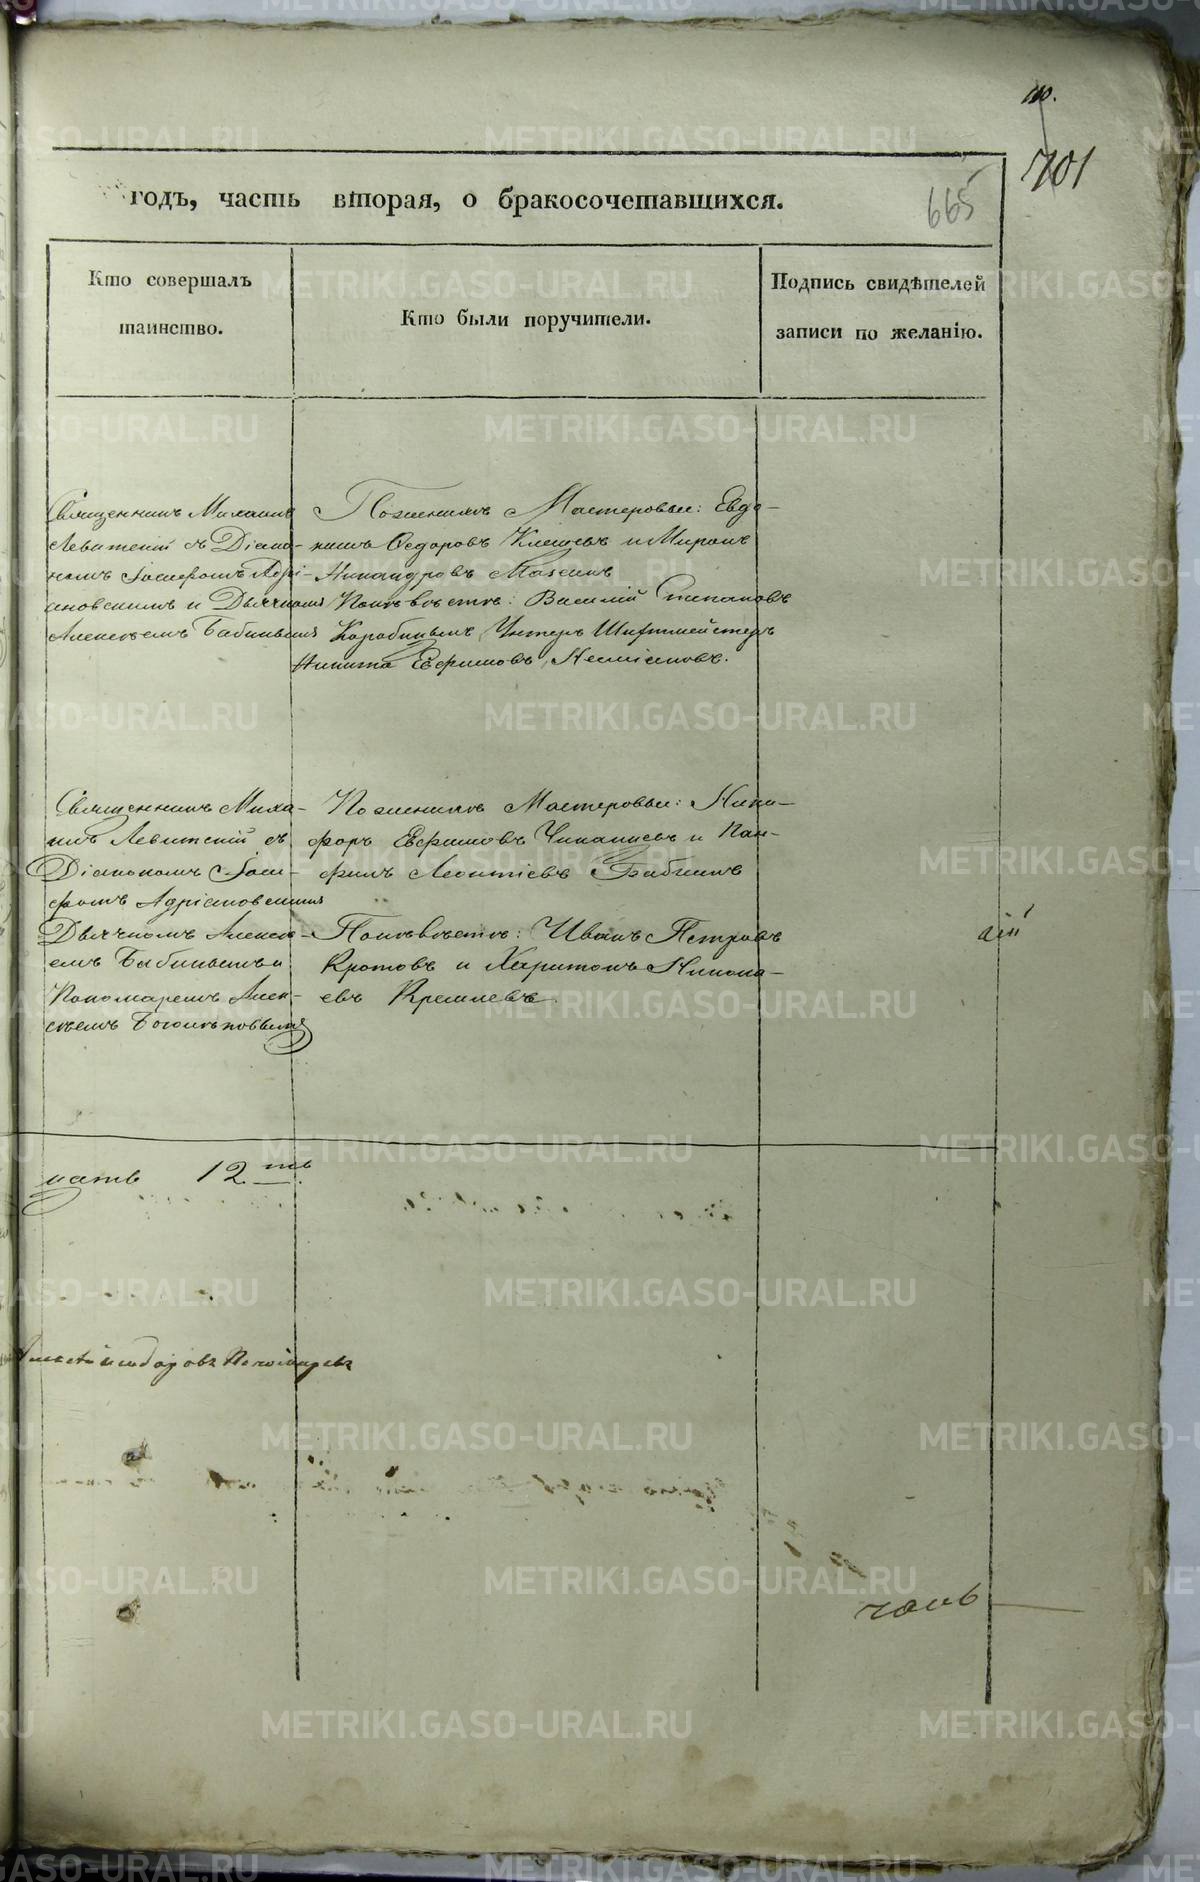 701
665
годъ, часть вторая, о бракосочетавшихся.
Кто совершалъ
таинство.
Кто были поручители.
Подпись свидѣтелей
записи по желанію.
Священникъ Михаилъ
Левитскій съ Діако-
номъ Іосифомъ Адрі-
ановскимъ и Дьячкомъ
Алексѣемъ Бабинымъ
По женихѣ Мастеровые: Евдо-
кимъ Ѳедоровъ Клещевъ и Миронъ
Никандровъ Мазеинъ
По невѣстѣ: Василій Степановъ
Коробицынъ, Унтеръ Шихтмейстеръ
Никита Ефимовъ
Священникъ Миха-
илъ Левитскій съ
Діакономъ Іоси-
фомъ Адріановскимъ
Дьячкомъ Алексѣ-
емъ Бабинымъ и
Пономаремъ Алек-
сѣемъ Богомоловымъ
По женихѣ Мастеровые: Ники-
форъ Ефимовъ и Пан-
филъ Леонтіевъ Бабкинъ
По невѣстѣ: Иванъ Петровъ
Кротовъ и Харитонъ Никола-
евъ Кремлевъ
аій
цать 12ть
METRIKI.GASO-URAL.RU